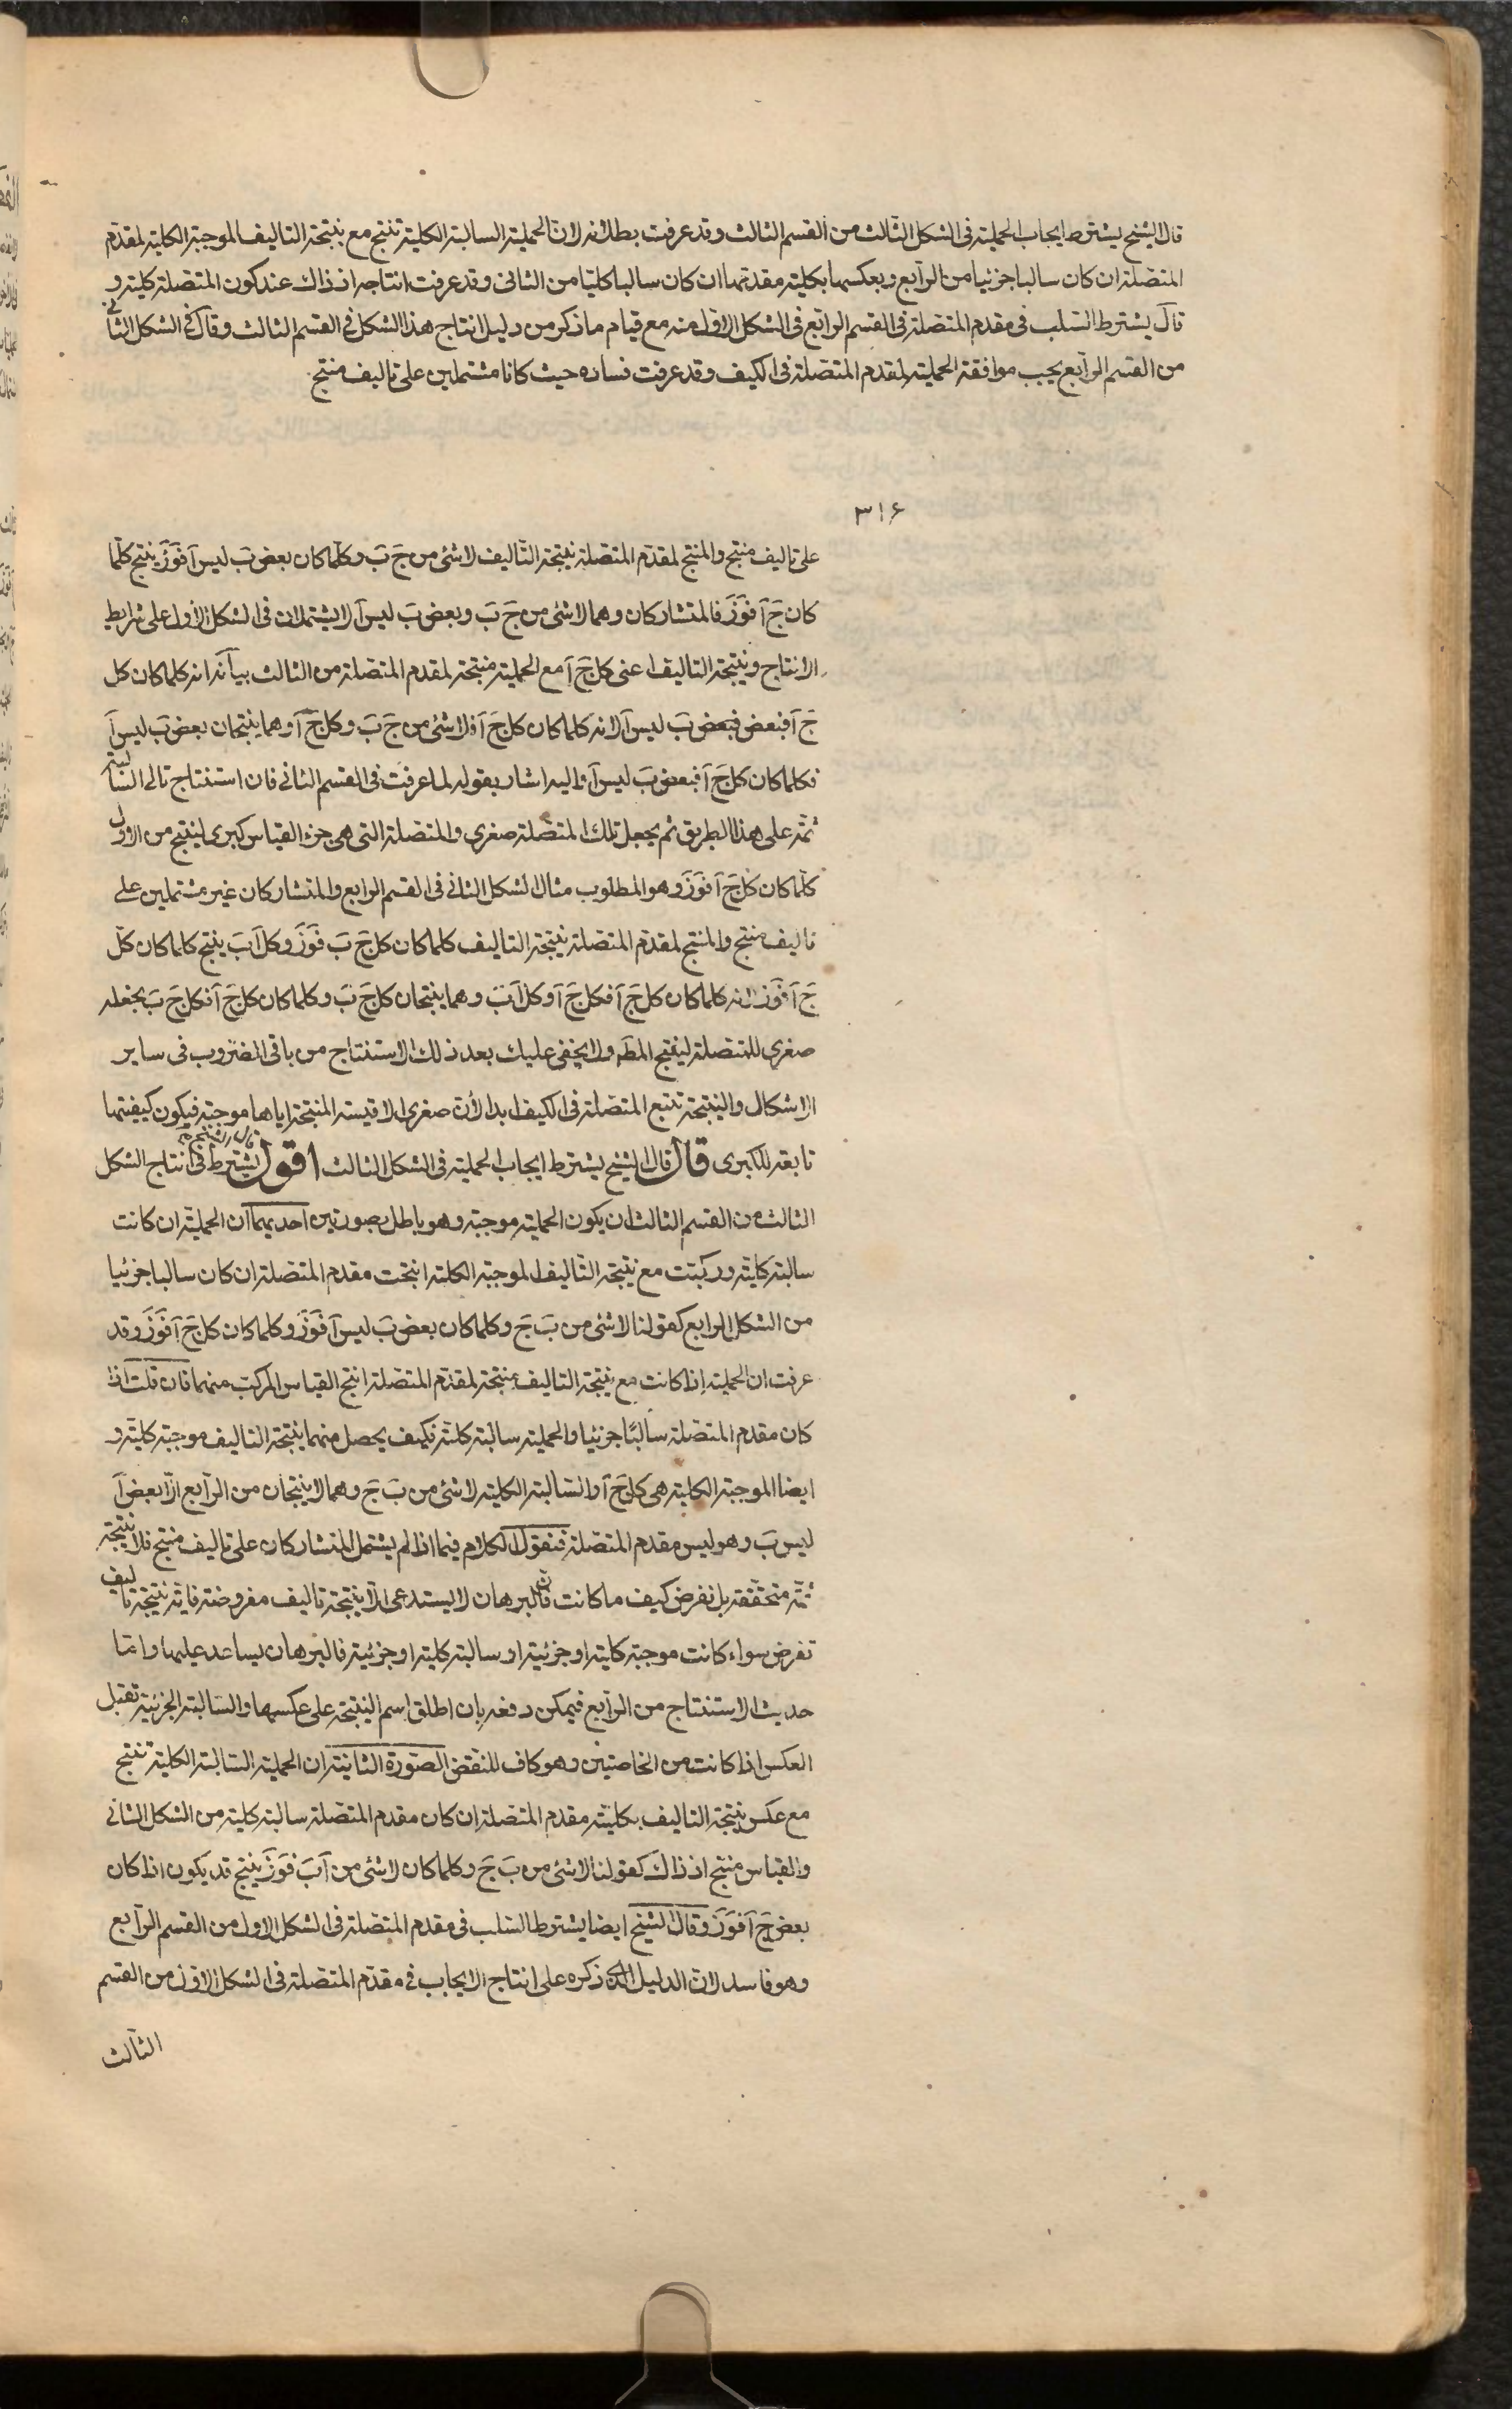 قال الشيخ يشترط ايجاب الحملية فى الشكل الثالث من القسم الثالث وقد عرفت بطلانه لان الحملية السالبة الكلية تنتج مع نتيجة التاليف الموجبة الكلية لمقدم
المتصلة ان كان سالبا جزئيا من الرابع وبعكسها بكلية مقدمتها ان كان سالبا كليا من الثانى وقد عرفت انتاجه اذ ذاك عند كون المتصلة كلية و
قال يشترط السلب فى مقدم المتصلة فى القسم الرابع فى الشكل الاول منه مع قيام ما ذكر من دليل انتاج هذا الشكل فى القسم الثالث وقال فى الشكل الثانى
من القسم الرابع يجب موافقة الحملية لمقدم المتصلة فى الكيف وقد عرفت فساده حيث كانا مشتملين على تاليف منتج
٣١۶
على تاليف منتج والمنتج لمقدم المتصلة نتيجة التاليف لا شئ من جَ بَ وكلما كان بعض بَ ليس آ فوَزَ ينتج كلما
كان جَ آ فوَزَ فالمتشاركان وهما لا شئ من جَ بَ وبعض بَ ليس آ لا يشتملان فى الشكل الاول على شرايط
الانتاج ونتيجة التاليف اعنى كل جَ آ مع الحملية منتجة لمقدم المتصلة من الثالث بيانه انه كلما كان كل
جَ آ فبعض فبعض بَ ليس آ لانه كلما كان كل جَ آ فلا شئ من جَ بَ وكل جَ آ وهما ينتجان بعض بَ ليس آ
فكلما كان كل جَ آ فبعض بَ ليس آ واليه اشار بقوله لما عرفت فى القسم الثانى فان استنتاج تالى السالبة
ثمه على هذا الطريق ثم يجعل تلك المتصلة صغرى والمتصلة التى هى جزء القياس كبرى لينتج من الاول
كلما كان كل جَ آ فوَزَ وهو المطلوب مثال الشكل الثانى فى القسم الرابع والمتشاركان غير مشتملين على
تاليف منتج والمنتج لمقدم المتصلة نتيجة التاليف كلما كان كل جَ بَ فوَزَ وكل آ بَ ينتج كلما كان كل
جَ آ فوَزَ لانه كلما كان كل جَ آ فكل جَ آ وكل آ بَ وهما ينتجان كل جَ بَ وكلما كان كل جَ آ فكل جَ بَ نجعله
صغرى للمتصلة لينتج المطَ ولا يخفى عليك بعد ذلك الاستنتاج من باقى الضروب فى ساير
الاشكال والنتيجة تتبع المتصلة فى الكيف ابدا لان صغرى الاقيسة المنتجة اياها موجبة فيكون كيفيتها
تابعة للكبرى قال قال الشيخ يشترط ايجاب الحملية فى الشكل الثالث اقول يشترط فى انتاج الشكل
الثالث من القسم الثالث ان يكون الحملية موجبة وهو باطل بصورتين احديهما ان الحملية ان كانت
سالبة كلية وركبت مع نتيجة التاليف الموجبة الكلية انتجت مقدم المتصلة ان كان سالبا جزئيا
من الشكل الرابع كقولنا لا شئ من بَ جَ وكلما كان بعض بَ ليس آ فوَزَ وكلما كان كل جَ آ فوَزَ وقد
عرفت ان الحملية اذا كانت مع نتيجة التاليف منتجة لمقدم المتصلة انتج القياس المركب منهما فان قلت اذا
كان مقدم المتصلة سالبًا جزئيا والحملية سالبة كلية فكيف يحصل منهما نتيجة التاليف موجبة كلية و
ايضا الموجبة الكلية هى كل جَ آ والسالبة الكلية لا شئ من بَ جَ وهما لا ينتجان من الرابع الا بعض آ
ليس بَ وهو ليس مقدم المتصلة فنقول الكلام فيما اذا لم يشتمل المتشاركان على تاليف منتج فلا نتيجة
ثمه متحققة بل نفرض كيف ما كانت فان البرهان لا يستدعى الا نتيجة تاليف مفروضة فاية نتيجة تاليف
تفرض سواء كانت موجبة كلية او جزئية او سالبة كلية او جزئية فالبرهان يساعد عليها واما
حديث الاستنتاج من الرابع فيمكن دفعه بان اطلق اسم النتيجة على عكسها والسالبة الجزئية تقبل
العكس اذا كانت من الخاصتين وهو كاف للنقض الصورة الثانية ان الحملية السالبة الكلية تنتج
مع عكس نتيجة التاليف بكلية مقدم المتصلة ان كان مقدم المتصلة سالبة كلية من الشكل الثانى
والقياس منتج اذ ذاك كقولنا لا شئ من بَ جَ وكلما كان لا شئ من آ بَ فوَزَ ينتج قد يكون اذا كان
بعض جَ آ فوَزَ وقال الشيخ ايضا يشترط السلب فى مقدم المتصلة فى الشكل الاول من القسم الرابع
وهو فاسد لان الدليل الذى ذكره على انتاج الايجاب فى مقدم المتصلة فى الشكل الاول من القسم
الثالث